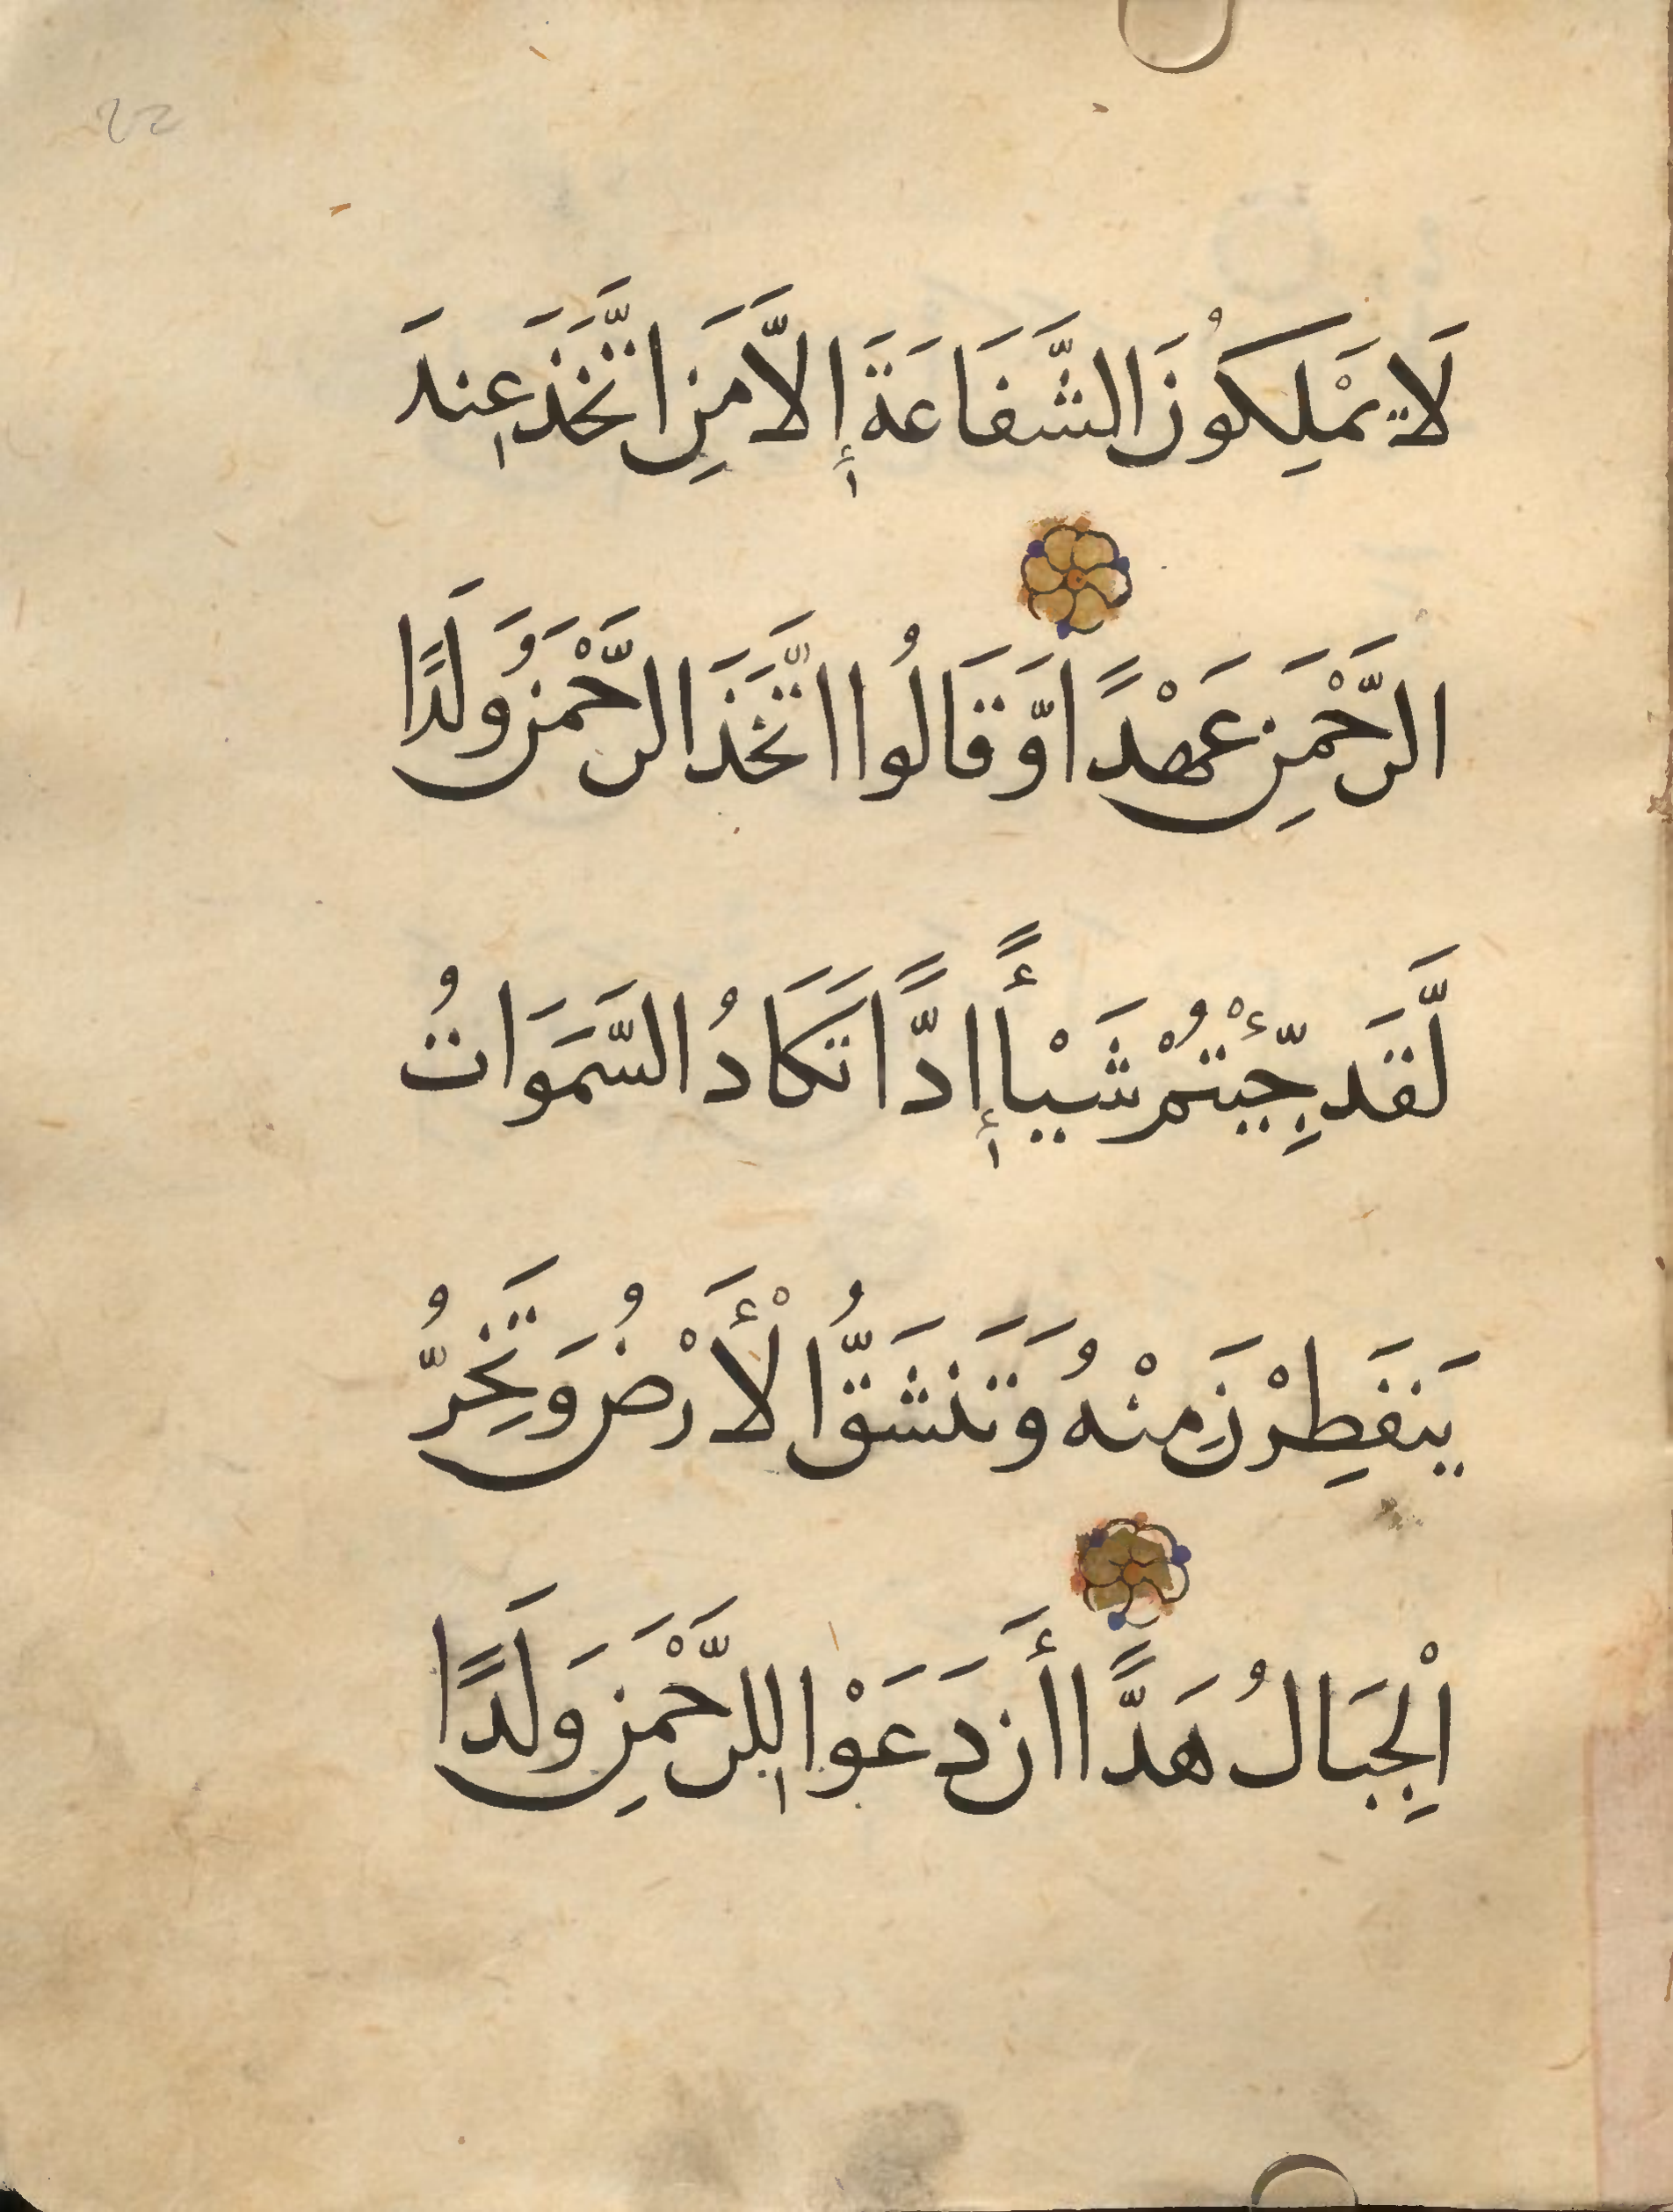 22
لَا يَمْلِكُونَ الشَّفَاعَةَ إِلَّا مَنِ اتَّخَذَ عِندَ
الرَّحْمَنِ عَهْدًا وَّقَالُوا اتَّخَذَ الرَّحْمَنُ وَلَدًا
لَّقَد جِّئْتُمْ شَيْـًٔا إِدًّا تَكَادُ السَّمَوَاتُ
يَنفَطِرْنَ مِنْهُ وَتَنشَقُّ الْأَرْضُ وَتَخِرُّ
الْجِبَالُ هَدًّا أَن دَعَوْا لِلرَّحْمَنِ وَلَدًا